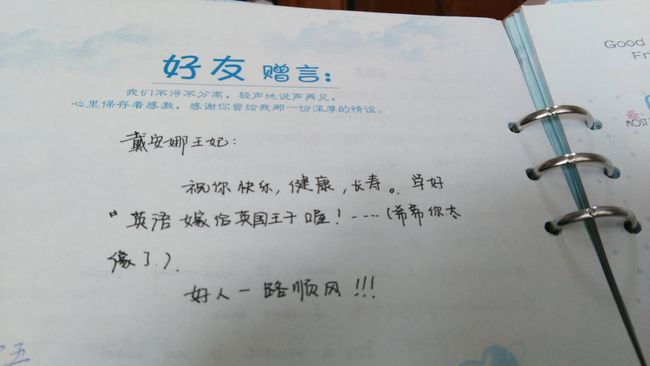 好友赠言：
我们不得不分离，轻声地说声再见，
心里保存着感激，感谢你曾给我那一份深厚的情谊。
戴安娜王妃：
祝你快乐，健康，长寿。学好
英语 嫁给英国王子喔！----（希希你太
像了.）.
好人一路顺风!!!
五
Good
Fr
MOST